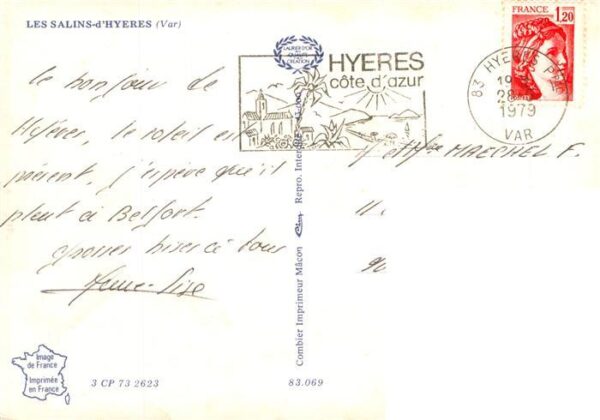 LES SALINS-d'HYERES (Var)
LAURIER D'OR
DE LA
CREATION
HYERES
côte d'azur
FRANCE
1,20
83 HYERES
28
1979
VAR
Le bonjour de
Hyères, le soleil est
présent, j'espère qu'il
pleut à Belfort.
grosses bises à tous
Anne-Lise
MAECHEL F.
11.
90
Combier Imprimeur Mâcon Cim Repro. Interdite
Image
de France
Imprimée
en France
3 CP 73 2623
83.069